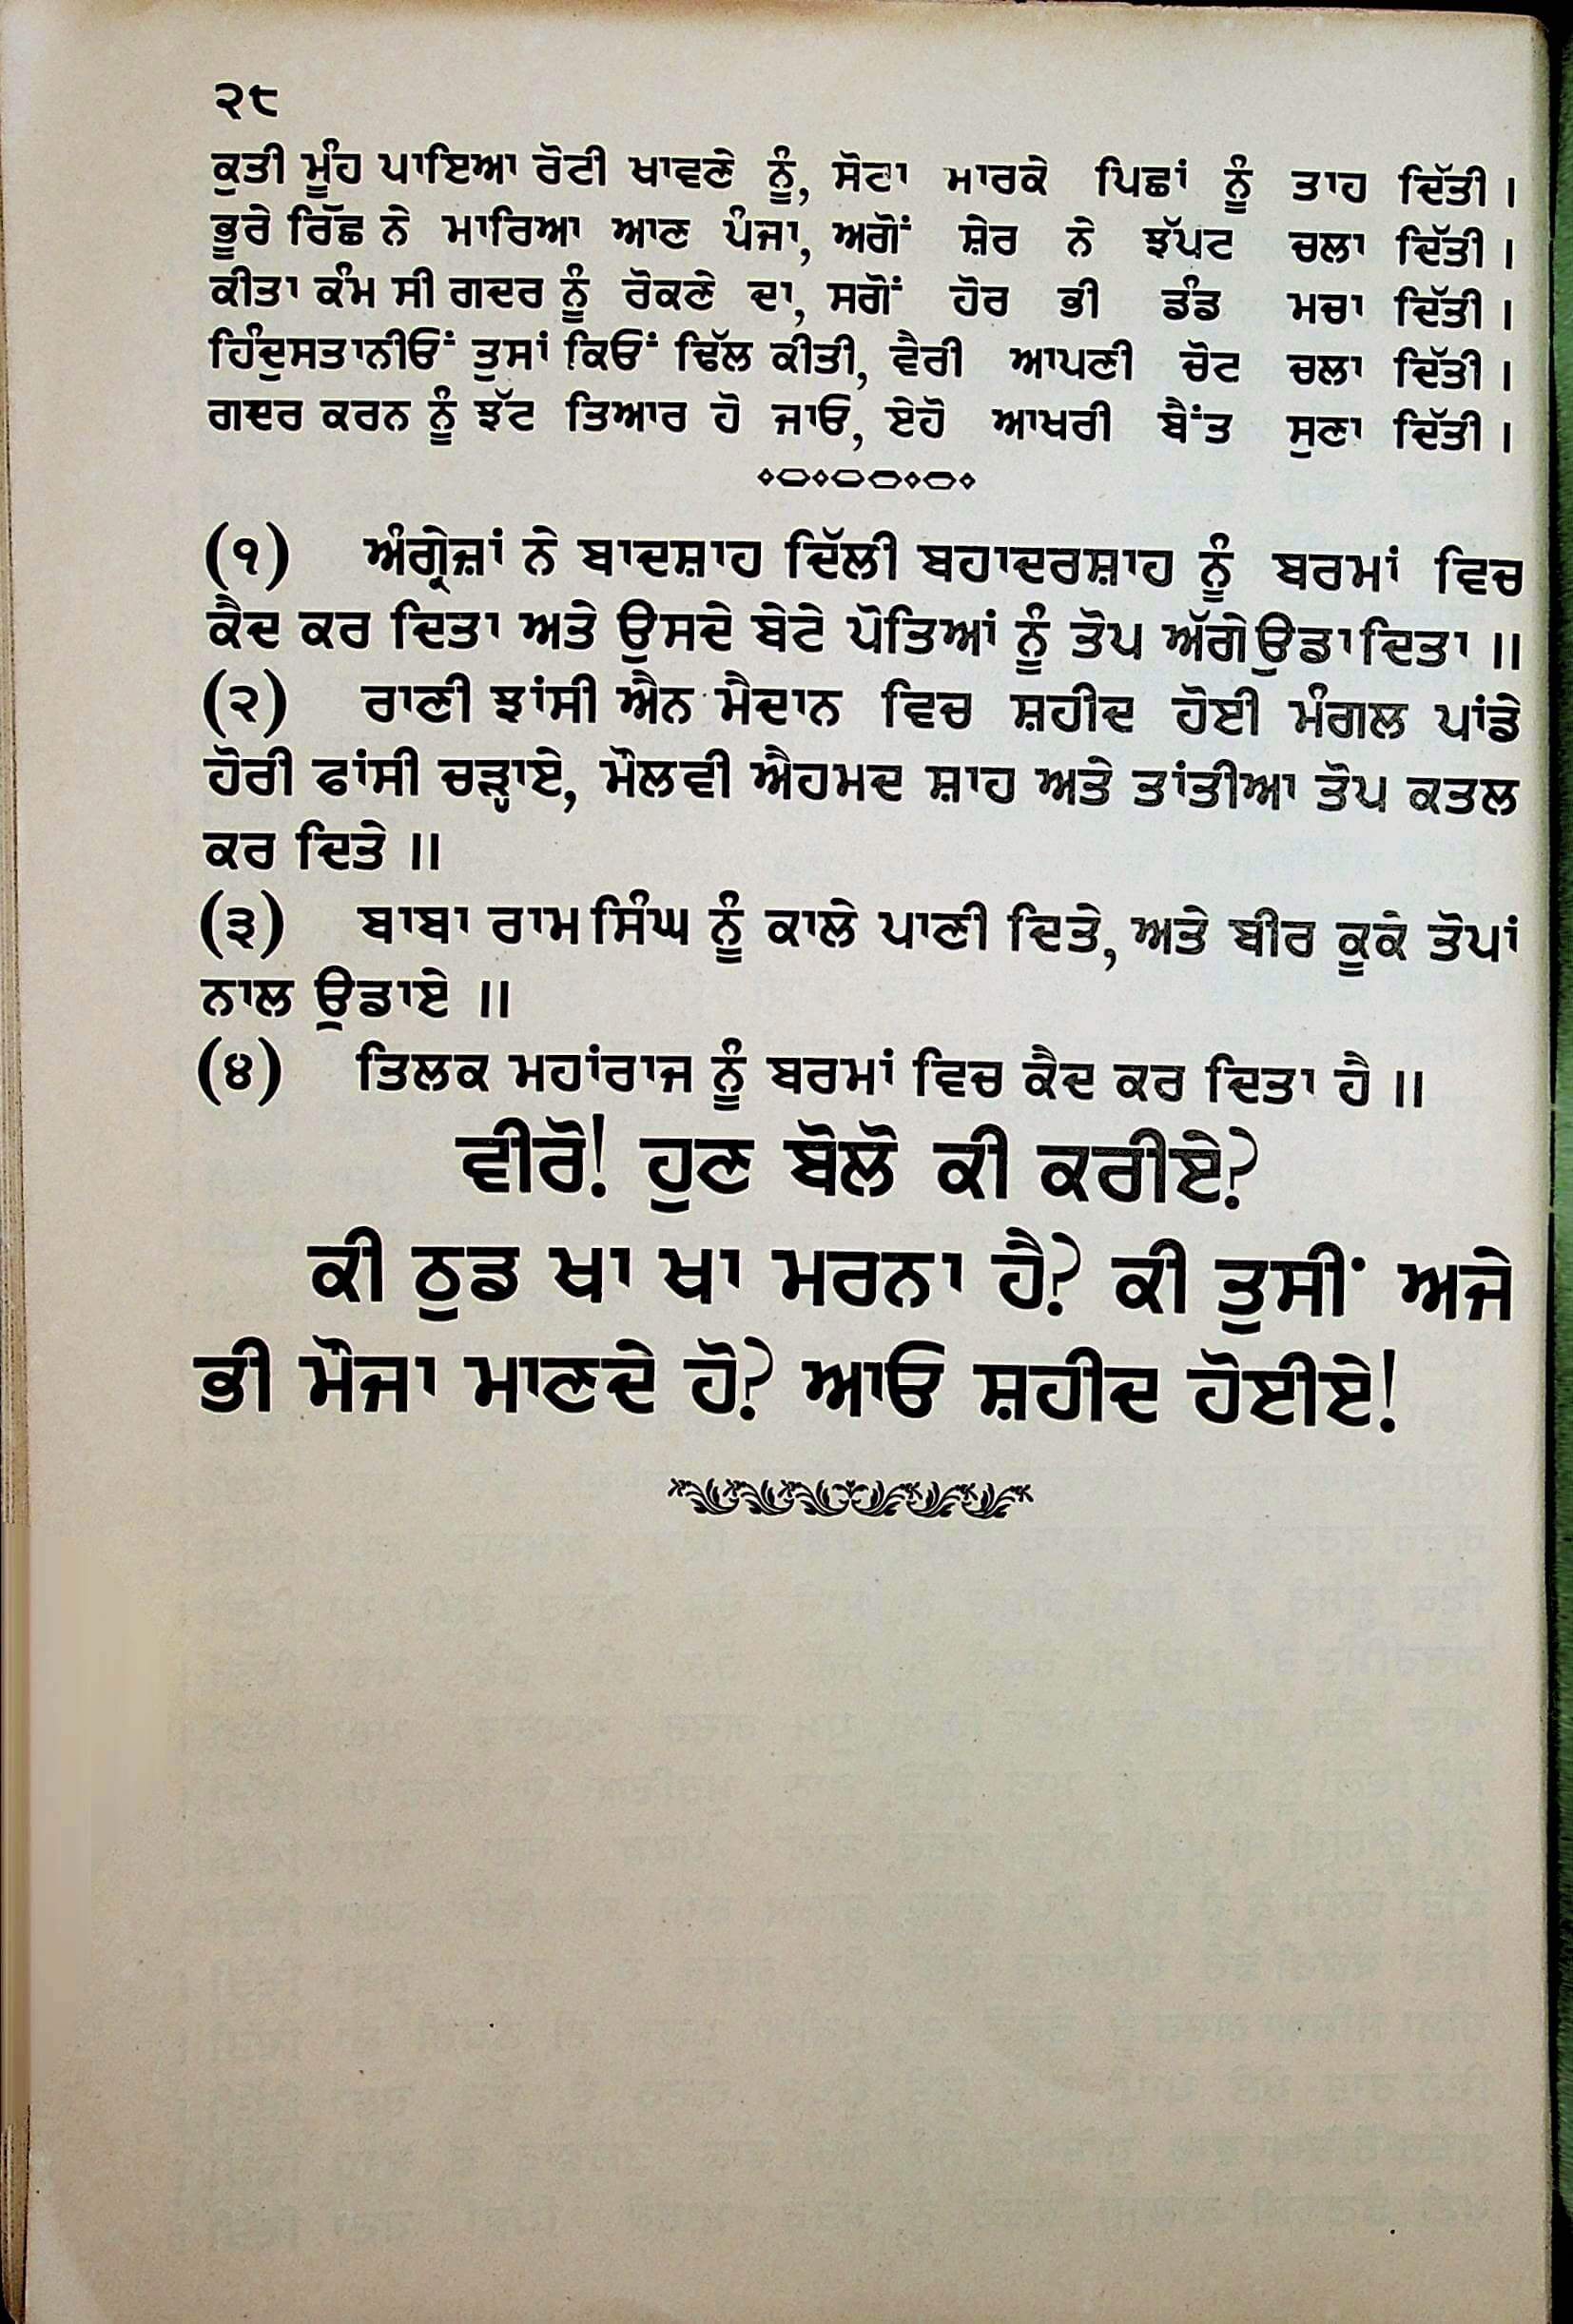 ੨੮
ਕੁਤੀ ਮੂੰਹ ਪਾਇਆ ਰੋਟੀ ਖਾਵਣੇ ਨੂੰ, ਸੋਟਾ ਮਾਰਕੇ ਪਿਛਾਂ ਨੂੰ ਤਾਹ ਦਿੱਤੀ।
ਭੂਰੇ ਰਿੱਛ ਨੇ ਮਾਰਿਆ ਆਣ ਪੰਜਾ, ਅਗੋਂ ਸ਼ੇਰ ਨੇ ਝੱਪਟ ਚਲਾ ਦਿੱਤੀ।
ਕੀਤਾ ਕੰਮ ਸੀ ਗਦਰ ਨੂੰ ਰੋਕਣੇ ਦਾ, ਸਗੋਂ ਹੋਰ ਭੀ ਡੰਡ ਮਚਾ ਦਿੱਤੀ।
ਹਿੰਦੁਸਤਾਨੀਓਂ ਤੁਸਾਂ ਕਿਓਂ ਢਿੱਲ ਕੀਤੀ, ਵੈਰੀ ਆਪਣੀ ਚੋਟ ਚਲਾ ਦਿੱਤੀ।
ਗਦਰ ਕਰਨ ਨੂੰ ਝੱਟ ਤਿਆਰ ਹੋ ਜਾਓ, ਏਹੋ ਆਖਰੀ ਬੈਂਤ ਸੁਣਾ ਦਿੱਤੀ।
(੧) ਅੰਗ੍ਰੇਜ਼ਾਂ ਨੇ ਬਾਦਸ਼ਾਹ ਦਿੱਲੀ ਬਹਾਦਰਸ਼ਾਹ ਨੂੰ ਬਰਮਾਂ ਵਿਚ
ਕੈਦ ਕਰ ਦਿਤਾ ਅਤੇ ਉਸਦੇ ਬੇਟੇ ਪੋਤਿਆਂ ਨੂੰ ਤੋਪ ਅੱਗੇ ਉਡਾ ਦਿਤਾ॥
(੨) ਰਾਣੀ ਝਾਂਸੀ ਐਨ ਮੈਦਾਨ ਵਿਚ ਸ਼ਹੀਦ ਹੋਈ ਮੰਗਲ ਪਾਂਡੇ
ਹੋਰੀ ਫਾਂਸੀ ਚੜ੍ਹਾਏ, ਮੌਲਵੀ ਐਹਮਦ ਸ਼ਾਹ ਅਤੇ ਤਾਂਤੀਆ ਤੋਪ ਕਤਲ
ਕਰ ਦਿਤੇ॥
(੩) ਬਾਬਾ ਰਾਮ ਸਿੰਘ ਨੂੰ ਕਾਲੇ ਪਾਣੀ ਦਿਤੇ, ਅਤੇ ਬੀਰ ਕੂਕੇ ਤੋਪਾਂ
ਨਾਲ ਉਡਾਏ॥
(੪) ਤਿਲਕ ਮਹਾਂਰਾਜ ਨੂੰ ਬਰਮਾਂ ਵਿਚ ਕੈਦ ਕਰ ਦਿਤਾ ਹੈ॥
ਵੀਰੋ! ਹੁਣ ਬੋਲੋ ਕੀ ਕਰੀਏ?
ਕੀ ਠੁਡ ਖਾ ਖਾ ਮਰਨਾ ਹੈ? ਕੀ ਤੁਸੀਂ ਅਜੇ
ਭੀ ਮੌਜਾ ਮਾਣਦੇ ਹੋ? ਆਓ ਸ਼ਹੀਦ ਹੋਈਏ!